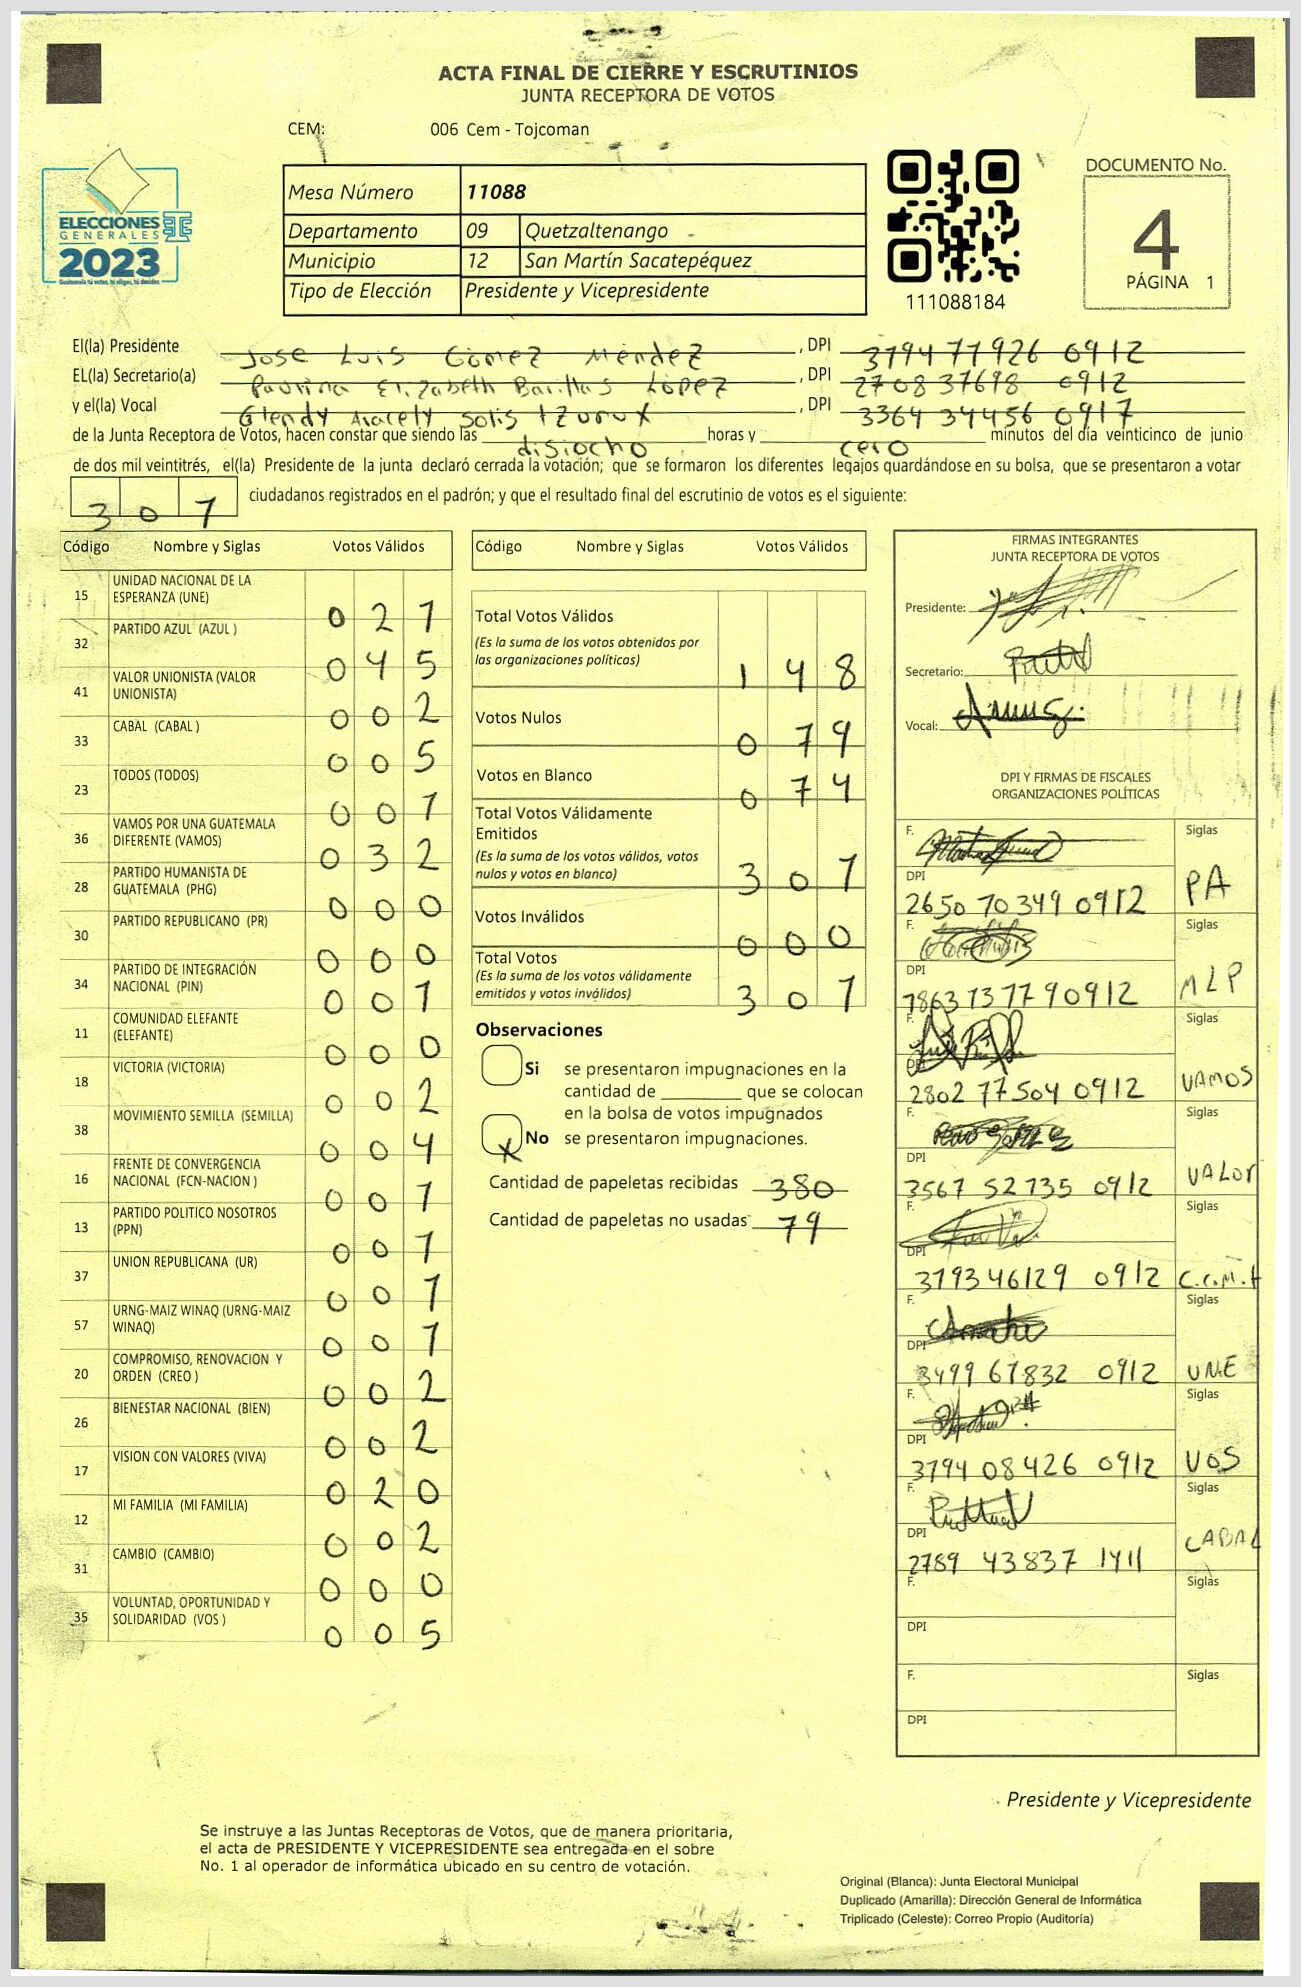 ACTA FINAL DE CIERRE Y ESCRUTINIOS
JUNTA RECEPTORA DE VOTOS
CEM: 006 Cem - Tojcoman
ELECCIONES
GENERALES
2023
Guatemala tú votas, tú eliges, tú decides
Mesa Número 11088
Departamento 09 Quetzaltenango
Municipio 12 San Martín Sacatepéquez
Tipo de Elección Presidente y Vicepresidente
111088184
DOCUMENTO No.
4
PÁGINA 1
El(la) Presidente Jose Luis Gómez Méndez, DPI 3194 77926 0912
EL(la) Secretario(a) Paurina Elizabeth Barillas López, DPI 2708 37698 0912
y el(la) Vocal Glendy Aracely Solis tzunux, DPI 3364 34456 0917
de la Junta Receptora de Votos, hacen constar que siendo las disiocho horas y cero minutos del día veinticinco de junio
de dos mil veintitrés, el(la) Presidente de la junta declaró cerrada la votación; que se formaron los diferentes legajos quardándose en su bolsa, que se presentaron a votar
307 ciudadanos registrados en el padrón; y que el resultado final del escrutinio de votos es el siguiente:
Código Nombre y Siglas Votos Válidos
15 UNIDAD NACIONAL DE LA ESPERANZA (UNE) 021
32 PARTIDO AZUL (AZUL ) 045
41 VALOR UNIONISTA (VALOR UNIONISTA) 002
33 CABAL (CABAL ) 005
23 TODOS (TODOS) 001
36 VAMOS POR UNA GUATEMALA DIFERENTE (VAMOS) 032
28 PARTIDO HUMANISTA DE GUATEMALA (PHG) 000
30 PARTIDO REPUBLICANO (PR) 000
34 PARTIDO DE INTEGRACIÓN NACIONAL (PIN) 001
11 COMUNIDAD ELEFANTE (ELEFANTE) 000
18 VICTORIA (VICTORIA) 002
38 MOVIMIENTO SEMILLA (SEMILLA) 004
16 FRENTE DE CONVERGENCIA NACIONAL (FCN-NACION ) 001
13 PARTIDO POLITICO NOSOTROS (PPN) 001
37 UNION REPUBLICANA (UR) 001
57 URNG-MAIZ WINAQ (URNG-MAIZ WINAQ) 001
20 COMPROMISO, RENOVACION Y ORDEN (CREO ) 002
26 BIENESTAR NACIONAL (BIEN) 002
17 VISION CON VALORES (VIVA) 020
12 MI FAMILIA (MI FAMILIA) 002
31 CAMBIO (CAMBIO) 000
35 VOLUNTAD, OPORTUNIDAD Y SOLIDARIDAD (VOS ) 005
Código Nombre y Siglas Votos Válidos
Total Votos Válidos
(Es la suma de los votos obtenidos por
las organizaciones políticas) 148
Votos Nulos 079
Votos en Blanco 074
Total Votos Válidamente
Emitidos
(Es la suma de los votos válidos, votos
nulos y votos en blanco) 301
Votos Inválidos 000
Total Votos
(Es la suma de los votos válidamente
emitidos y votos inválidos) 301
Observaciones
Si se presentaron impugnaciones en la
cantidad de ________ que se colocan
en la bolsa de votos impugnados
X No se presentaron impugnaciones.
Cantidad de papeletas recibidas 380
Cantidad de papeletas no usadas 79
FIRMAS INTEGRANTES
JUNTA RECEPTORA DE VOTOS
Presidente:
Secretario:
Vocal:
DPI Y FIRMAS DE FISCALES
ORGANIZACIONES POLÍTICAS
F. Siglas
DPI 2650 70349 0912 PA
F. Siglas
DPI 7863 73779 0912 MLP
F. Siglas
DPI 2802 77504 0912 VAMOS
F. Siglas
DPI 3567 52735 0912 VALOR
F. Siglas
DPI 3793 46129 0912
F. Siglas
DPI 3499 67832 0912 UNE
F. Siglas
DPI 3794 08426 0912 VOS
F. Siglas
DPI 2789 43837 1411 CABAL
F. Siglas
DPI
F. Siglas
DPI
Presidente y Vicepresidente
Se instruye a las Juntas Receptoras de Votos, que de manera prioritaria,
el acta de PRESIDENTE Y VICEPRESIDENTE sea entregada en el sobre
No. 1 al operador de informática ubicado en su centro de votación.
Original (Blanca): Junta Electoral Municipal
Duplicado (Amarilla): Dirección General de Informática
Triplicado (Celeste): Correo Propio (Auditoría)